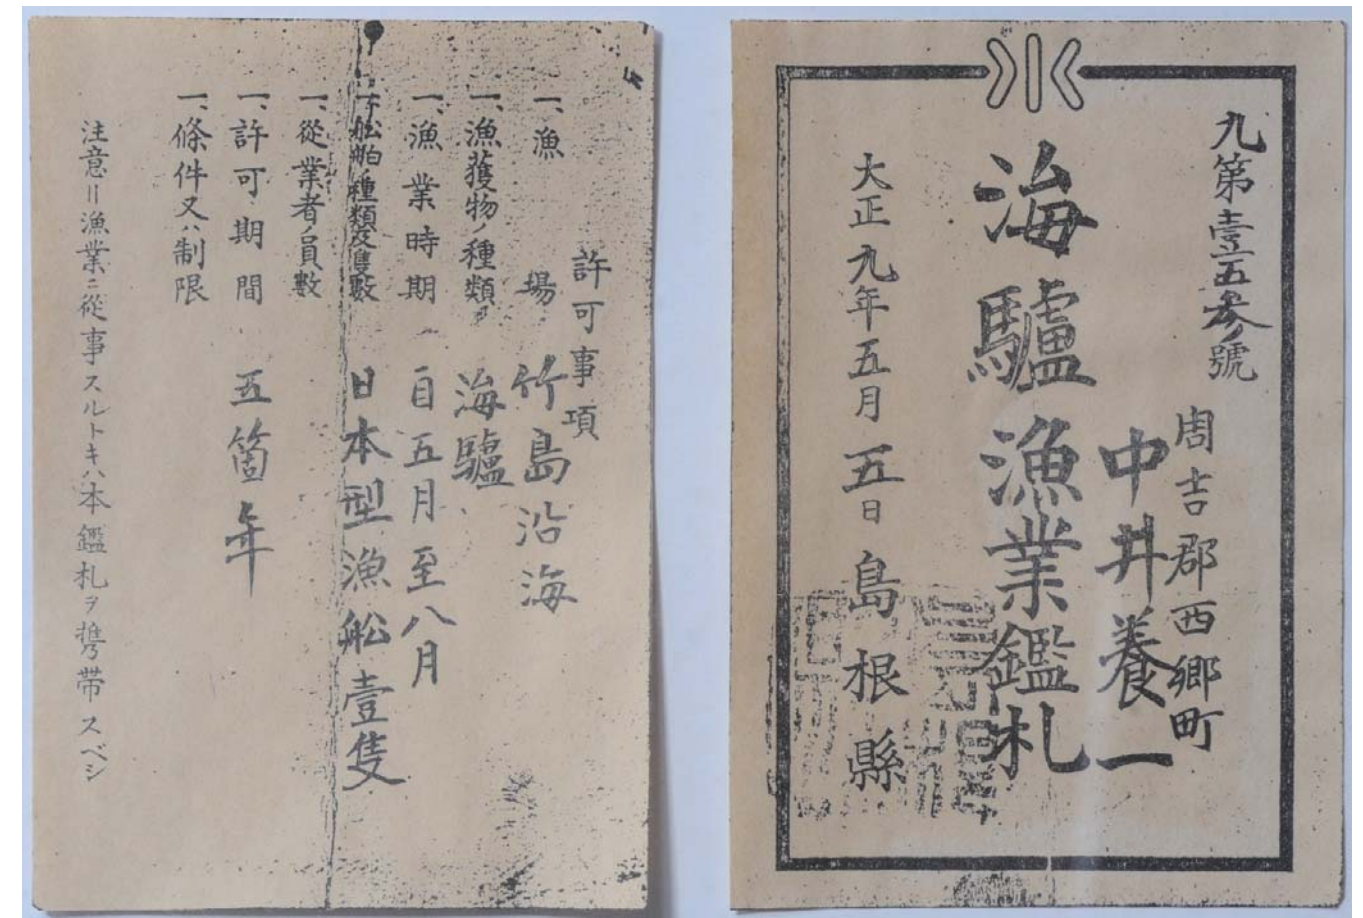 九第壹五參號
周吉郡西郷町
中井養一
海驢漁業鑑札
大正九年五月五日
島根縣
許可事項
一、漁場 竹島沿海
一、漁獲物ノ種類 海驢
一、漁業時期 自五月至八月
一、舩舶ノ種類及隻數 日本型漁舩壹隻
一、從業者ノ員數
一、許可期間 五箇年
一、條件又ハ制限
注意‖漁業ニ從事スルトキハ本鑑札ヲ携帯スベシ